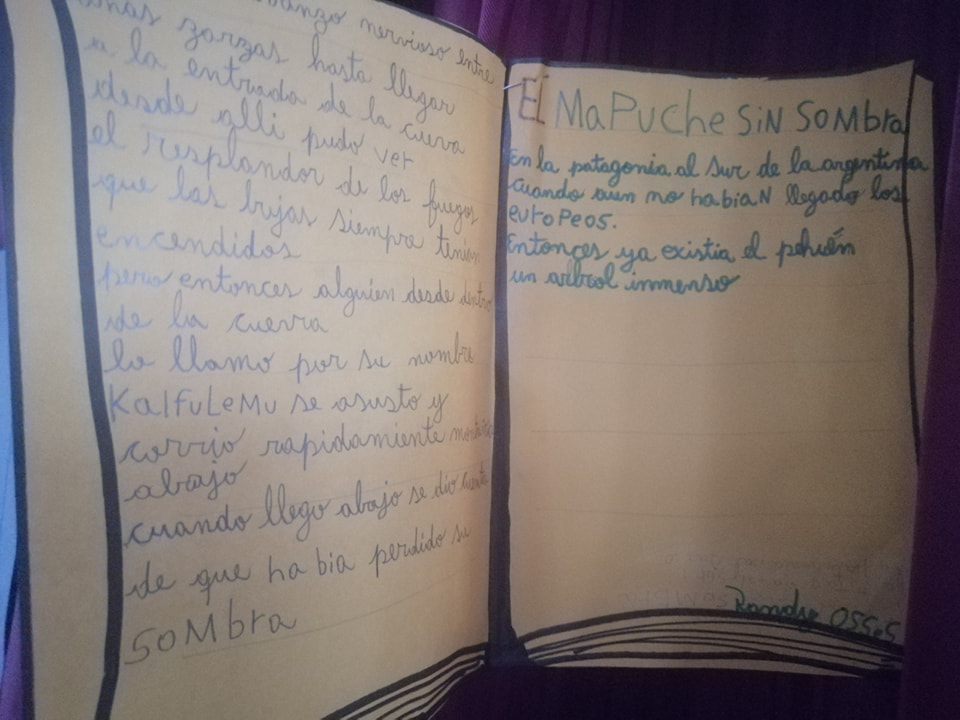 avanzo nervioso entre
unas zarzas hasta llegar
a la entrada de la cueva
desde alli pudo ver
el resplandor de los fuegos
que las brjas siempre tenian
encendidos
pero entonces alguien desde dentro
de la cuevra
lo llamo por su nombre
KalfuLeMu se asusto y
corrio rapidamiente montaña
abajo
cuando llego abajo se dio cuenta
de que habia perdido su
soMbra
El MaPuche SiN SoMbra
En la patagonia al sur de la argentina
cuando aun no habiaN llegado los
euroPeos.
Entonces ya existia el pehuén
un arbol inmenso
Randy OSSeS